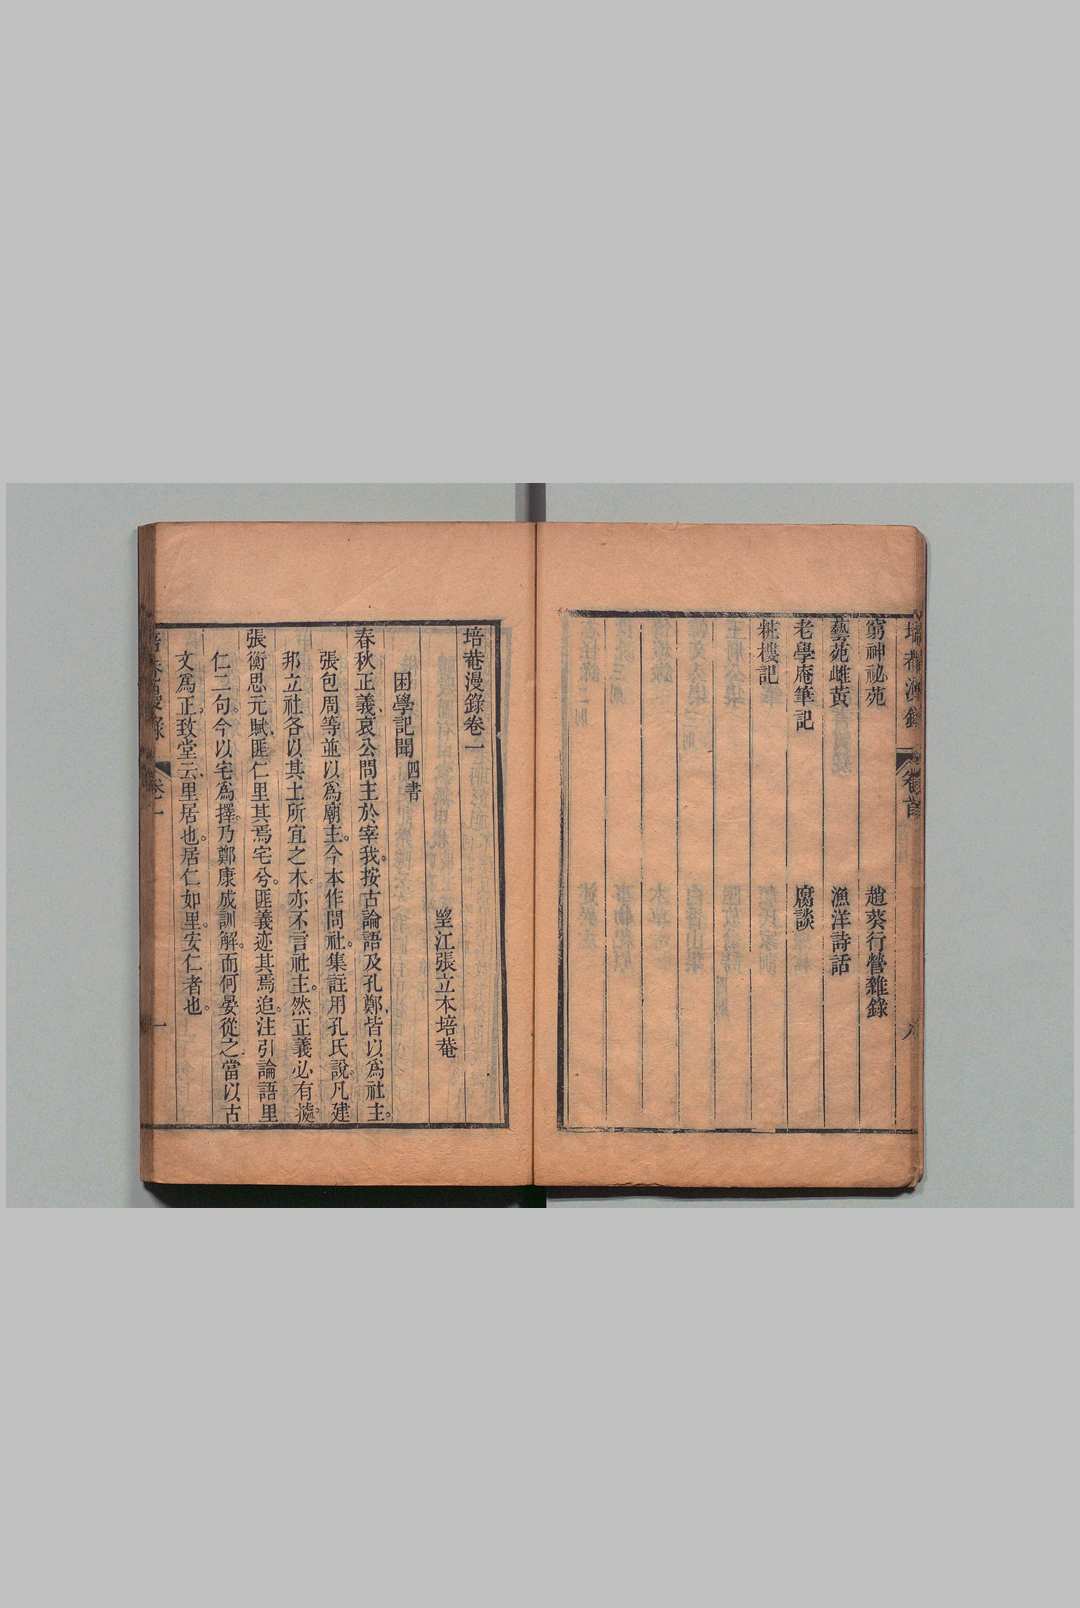 培菴漫錄
卷首
八
窮神祕苑
趙葵行營雜錄
藝苑雌黃
漁洋詩話
老學庵筆記
腐談
粧樓記
培菴漫錄卷一
望江張立本培菴
困學記聞 四書
春秋正義哀公問主於宰我。按古論語及孔鄭皆以為社主。
張包周等並以為廟主。今本作問社。集註用孔氏說。凡建
邦立社各以其土所宜之木。亦不言社主。然正義必有據。
張衡思元賦匪仁里其焉宅兮。匪義迹其焉追。注引論語里
仁二句。今以宅為擇。乃鄭康成訓解。而何晏從之當以古
文為正。致堂云里居也。居仁如里。安仁者也。
培菴漫錄
卷一
一